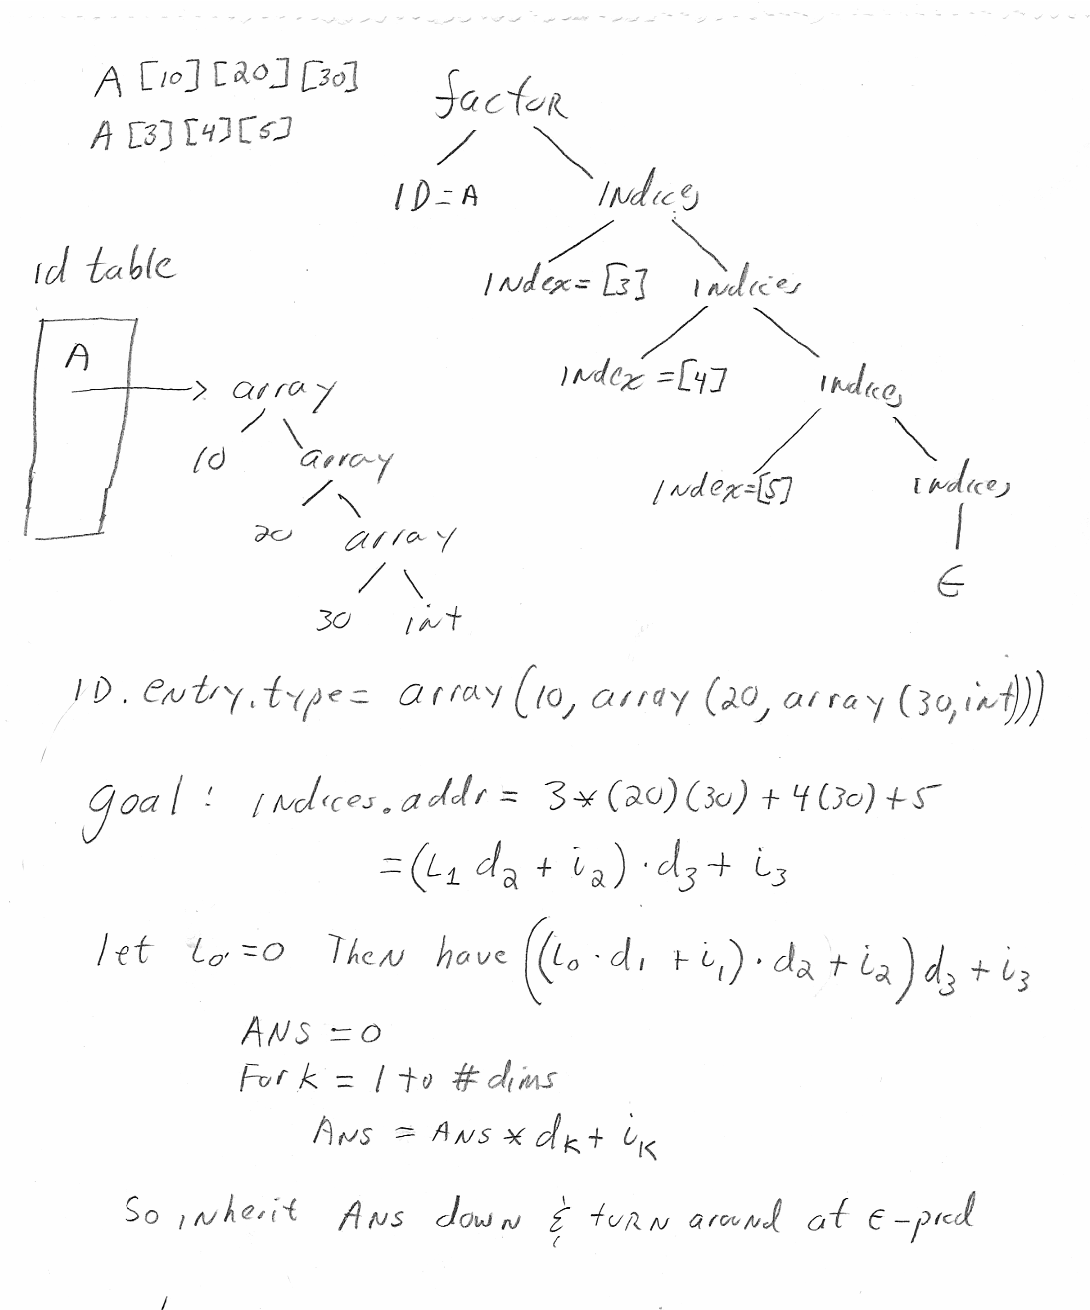 A [10] [20] [30]
A [3] [4] [5]
factor
ID = A
Indices
Index = [3]
indices
Index = [4]
indices
Index = [5]
indices
ε
id table
A
array
10
array
20
array
30
int
ID.entry.type = array (10, array (20, array (30, int)))
goal: Indices.addr = 3 * (20)(30) + 4(30) + 5
= (i₁ d₂ + i₂) · d₃ + i₃
let i₀ = 0 Then have ((i₀ · d₁ + i₁) · d₂ + i₂) d₃ + i₃
ANS = 0
For k = 1 to # dims
ANS = ANS * dₖ + iₖ
So inherit ANS down & turn around at ε-prod